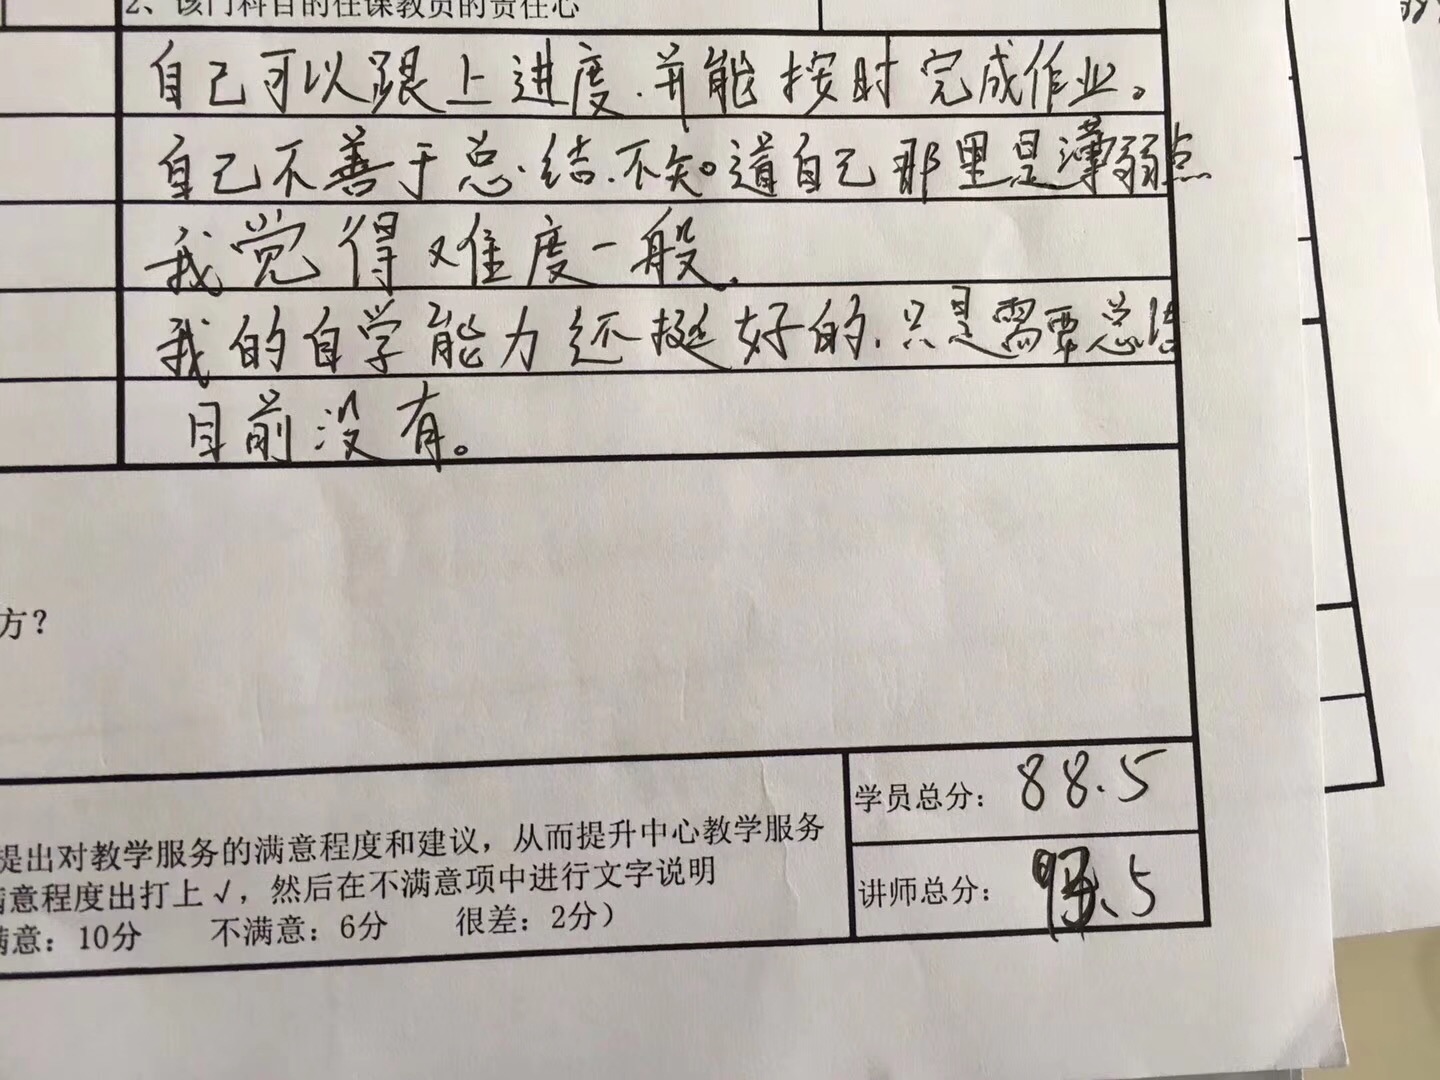 2、该门科目的任课教员的责任心
自己可以跟上进度.并能按时完成作业。
自己不善于总结.不知道自己那里是薄弱点
我觉得难度一般.
我的自学能力还挺好的.只是需要总结
目前没有。
方？
学员总分： 88.5
提出对教学服务的满意程度和建议，从而提升中心教学服务
满意程度出打上√，然后在不满意项中进行文字说明
讲师总分： .5
满意：10分 不满意：6分 很差：2分）